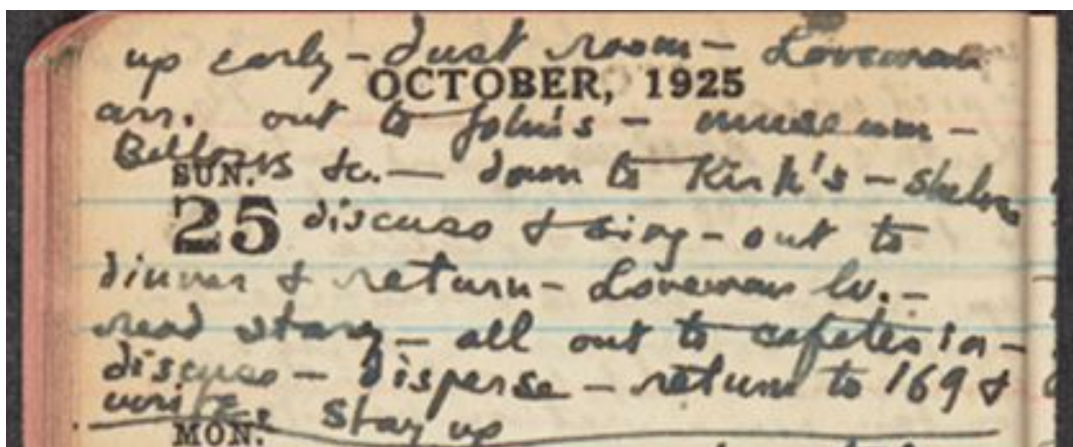 up early – dust room – Loveman
OCTOBER, 1925
arr. out to John's – museum –
Bellows &c. – down to Kirk's –
SUN.
25 discuss & sing – out to
dinner & return – Loveman lv. –
read story – all out to cafeteria –
discuss – disperse – return to 169 &
write. Stay up
MON.